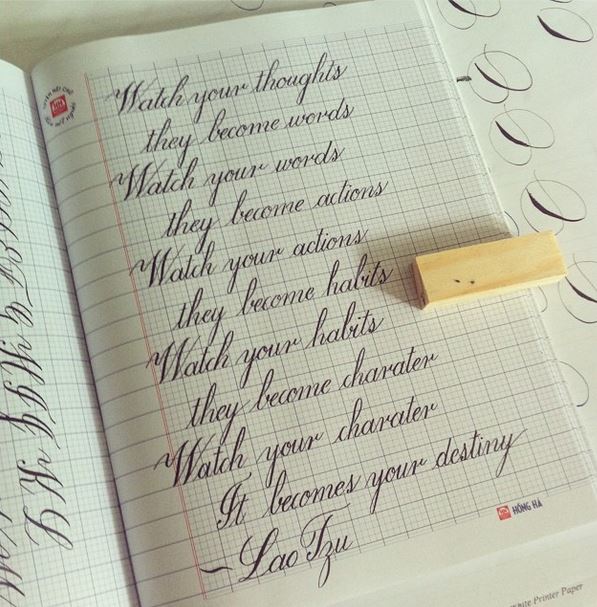 Watch your thoughts
they become words
Watch your words
they become actions
Watch your actions
they become habits
Watch your habits
they become charater
Watch your charater
It becomes your destiny
~Lao Tzu
HỒNG HÀ
Printer Paper